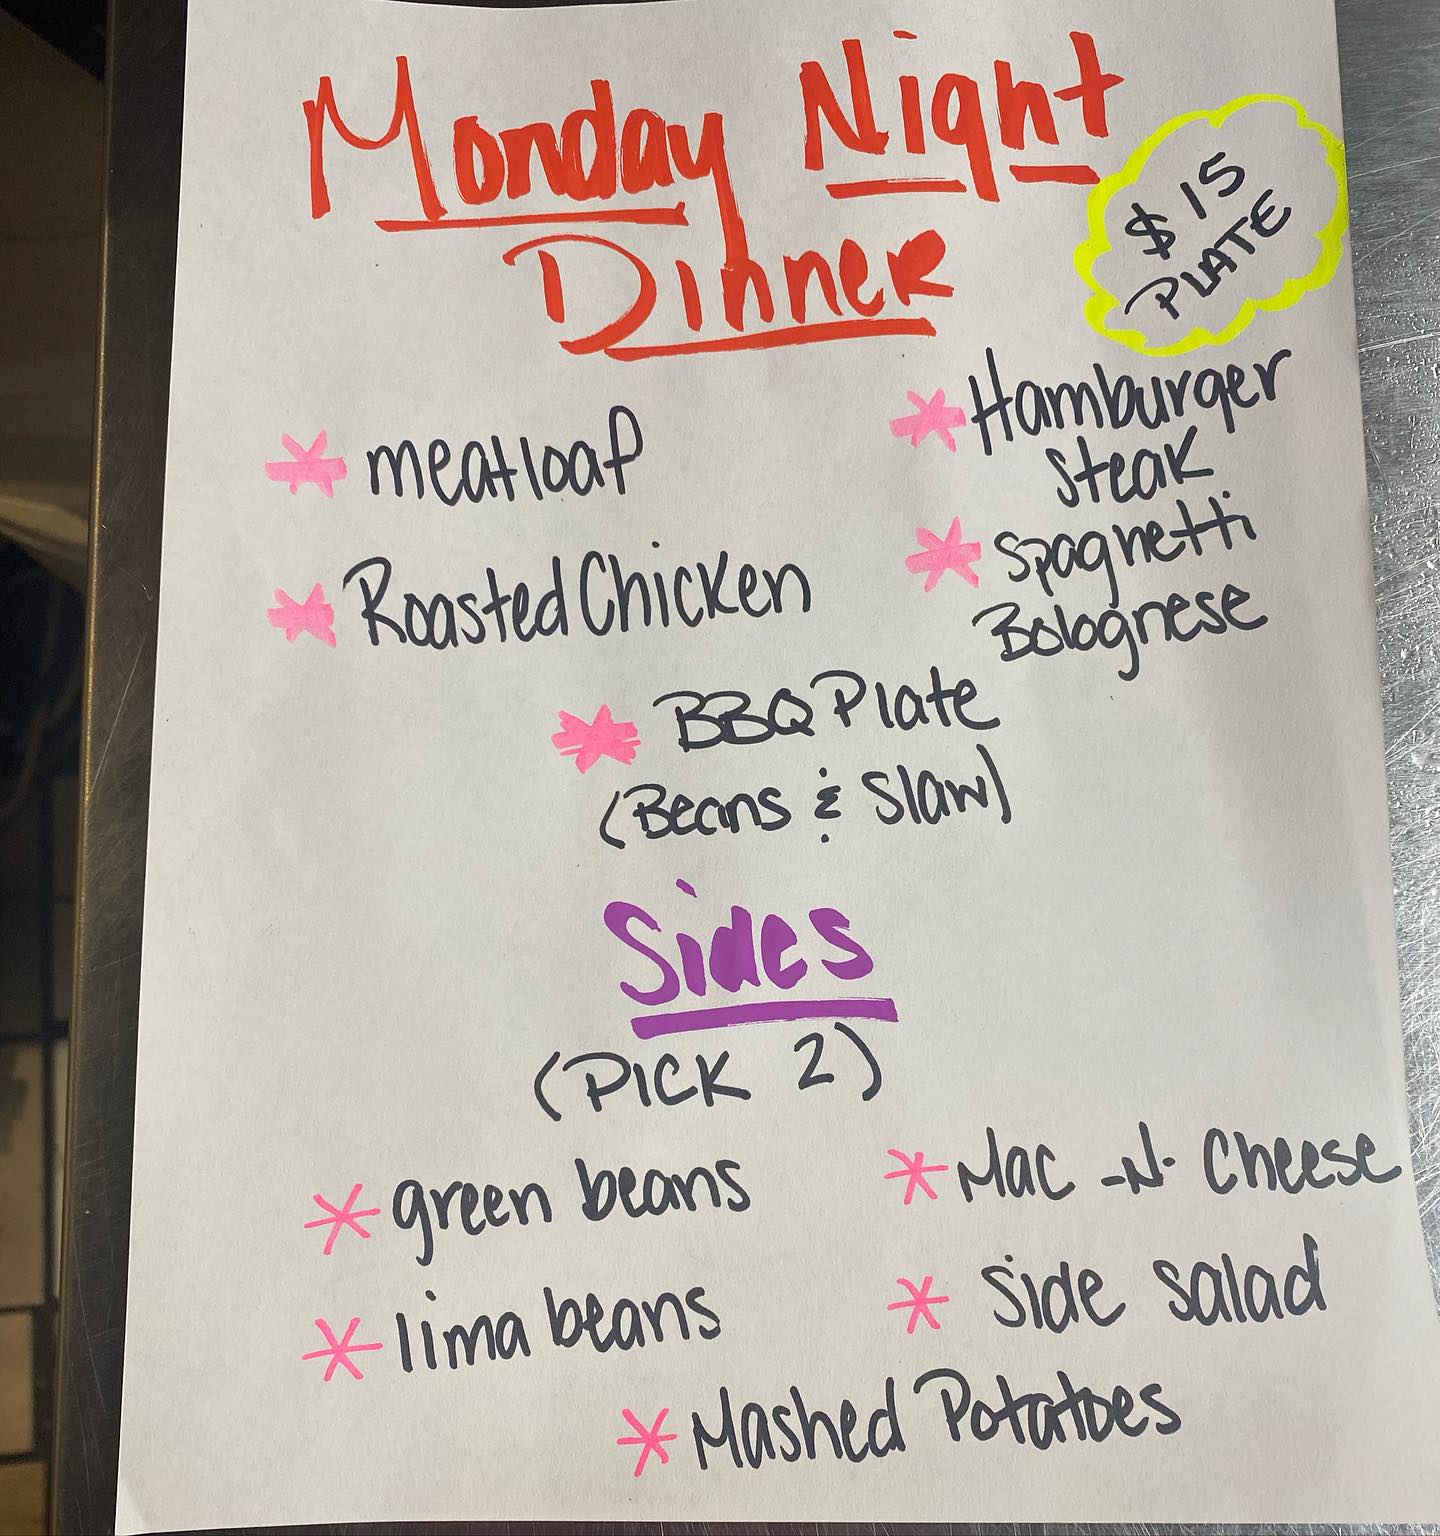 Monday Night
Dinner
$15
PLATE
* meatloaf
* Hamburger
Steak
* Roasted Chicken
* Spaghetti
Bolognese
* BBQ Plate
(Beans & Slaw)
Sides
(PICK 2)
* green beans
* Mac -N- Cheese
* lima beans
* Side salad
* Mashed Potatoes